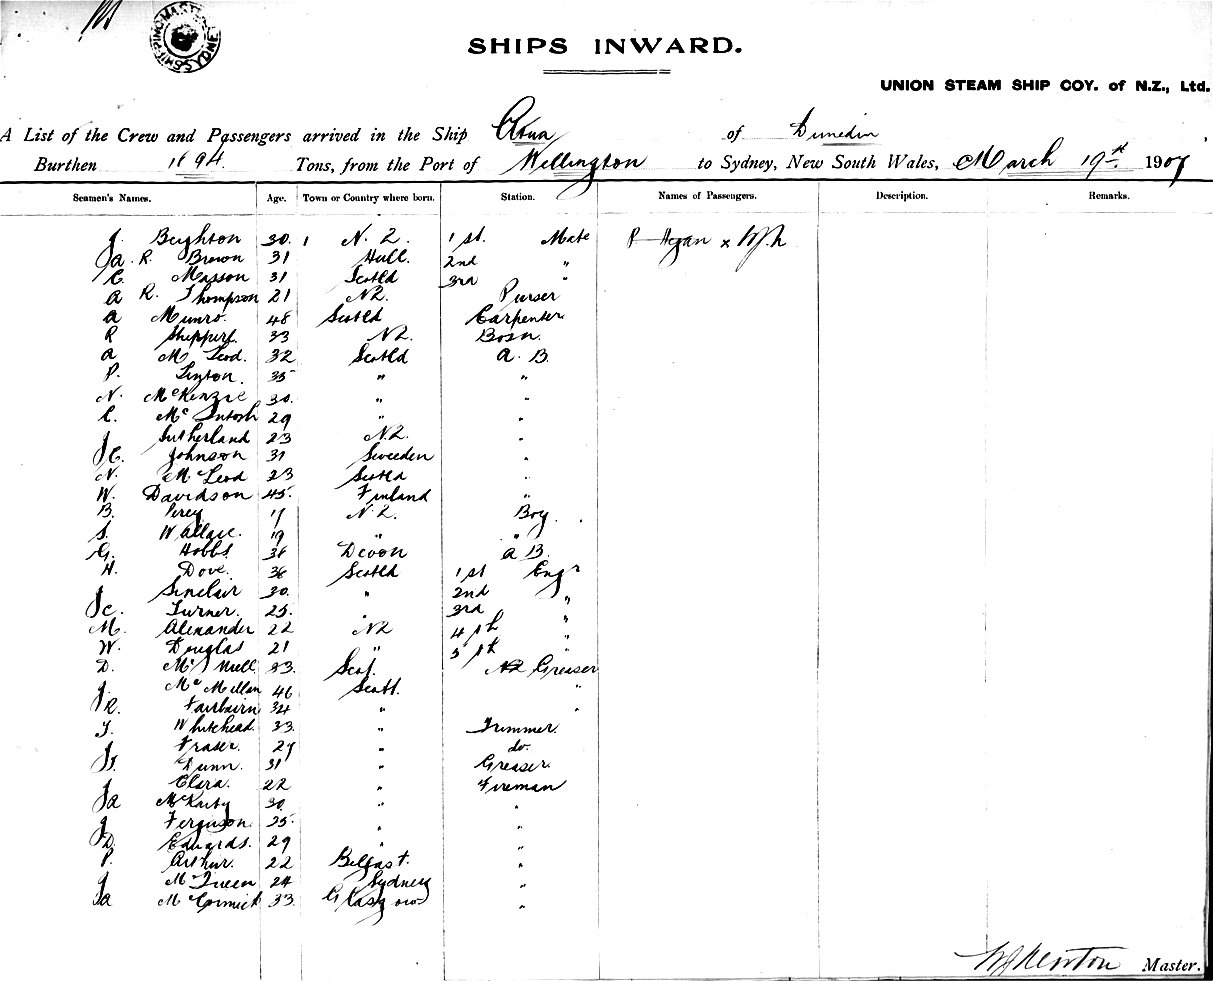 SHIPPING MASTER SYDNEY
SHIPS INWARD.
UNION STEAM SHIP COY. of N.Z., Ltd.
A List of the Crew and Passengers arrived in the Ship Atua of Dunedin
Burthen 1194 Tons, from the Port of Wellington to Sydney, New South Wales, March 19th 1907
Seamen's Names. Age. Town or Country where born. Station. Names of Passengers. Description. Remarks.
J. Beighton 30. N.Z. 1st. Mate P Hegan x
J a. R. Brown 31 Hull. 2nd "
C. Masson 31 Scotld 3rd "
A R. Thompson 21 NZ. Purser
A Munro. 48 Scotld Carpenter
R Shepperd. 33 NZ. Bosn.
A McLeod. 32 Scotld A. B.
P. Linton. 35 " "
N. McKenzie 30. " "
C. McIntosh 29 " "
J Sutherland 23 N.Z. "
J C. Johnson 31 Sweeden "
N. McLeod 23 Scotld "
W. Davidson 45. Finland "
B. Percy 17 N.Z. Boy.
S. Wallace. 19 " "
G. Hobbs 36 Devon A B.
H. Dove. 36 Scotld 1st Engr
J Sinclair 30. " 2nd "
J C. Turner. 25. " 3rd "
M. Alexander 22 NZ 4th "
W. Douglas 21 " 5th "
D. McNeill 33. Scot. Greaser
J. McMillan 46 Scott. "
J R. Fairbairn 34 " "
T. Whitehead. 33. " Trimmer.
J Fraser. 27 " do.
J. Dunn. 31 " Greaser.
J Clara. 22 " Fireman
J a McKarty 30 " "
J Ferguson. 25. " "
D. Edwards. 29 " "
P. Arthur. 22 Belfast. "
J McQueen 24 Sydney "
J a McCormick 33. Glasgow "
Newton Master.